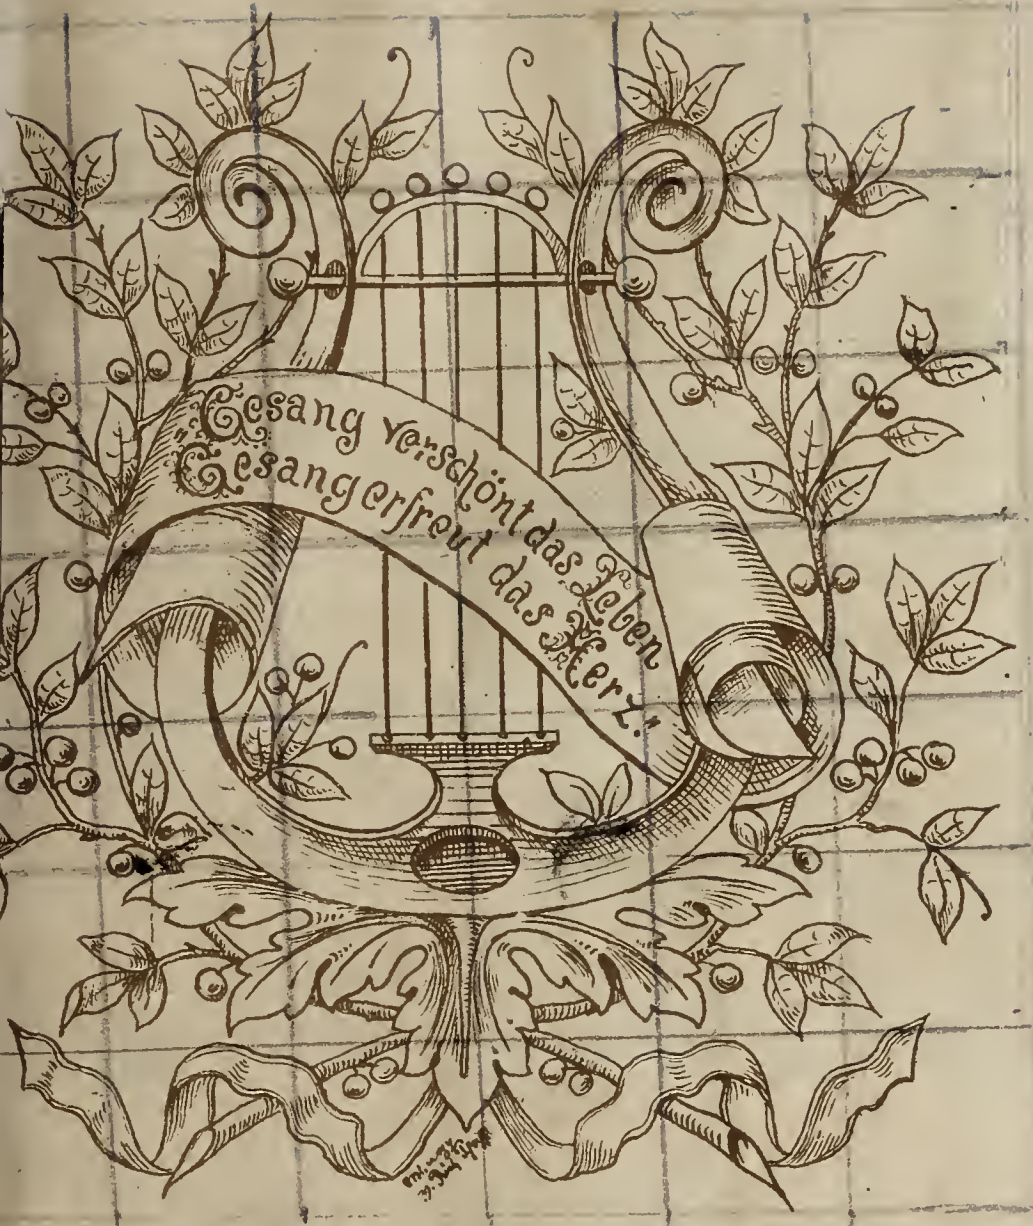 „Gesang verschönt das Leben
Gesang erfreut das Herz.“